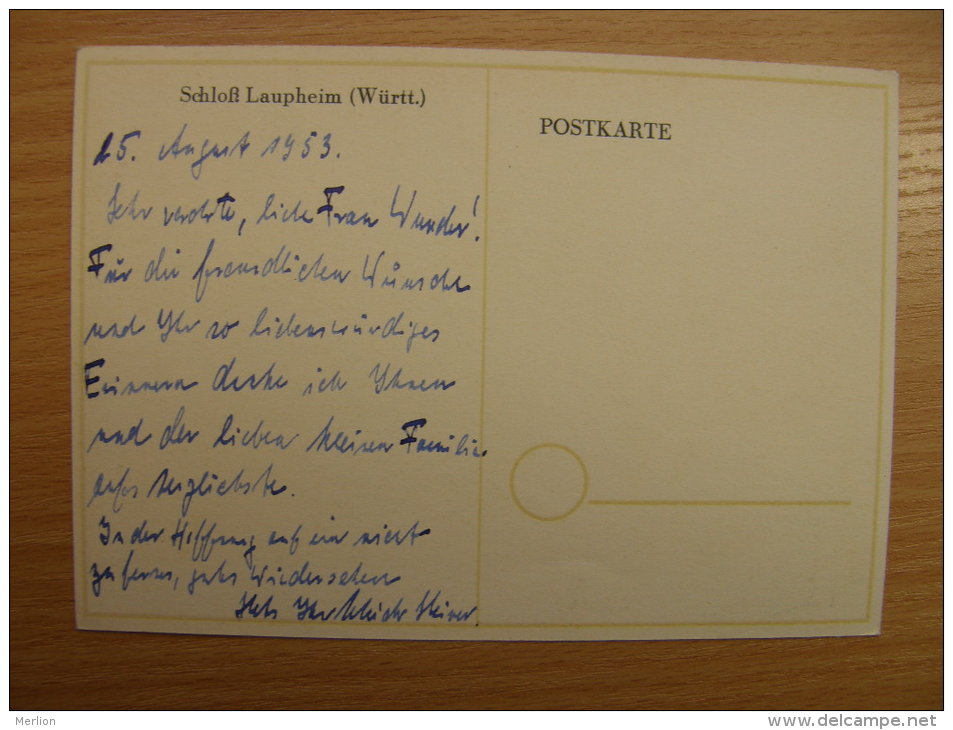 Schloß Laupheim (Württ.)
POSTKARTE
25. August 1953.
Sehr verehrte, liebe Frau Wunder!
Für die freundlichen Wünsche
und Ihr so liebenswürdiges
Erinnern danke ich Ihnen
und der lieben kleinen Familie
aufs herzlichste.
In der Hoffnung auf ein nicht
zu fernes, gutes Wiedersehen
Stets Ihr
Merlion
www.delcampe.net